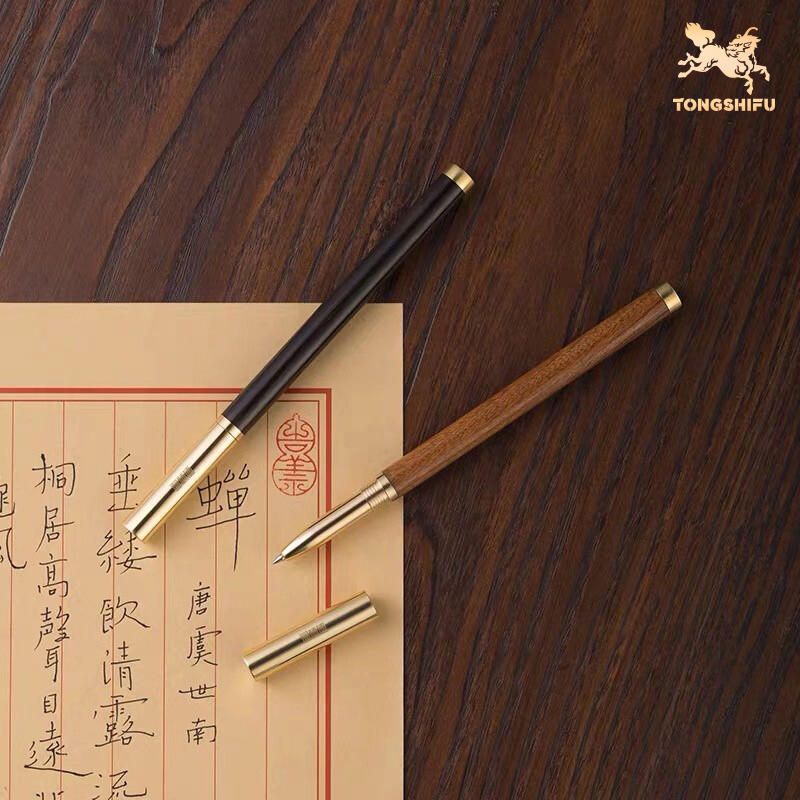 TONGSHIFU
蝉
唐 虞世南
垂緌飲清露 流
桐居高聲自遠
風